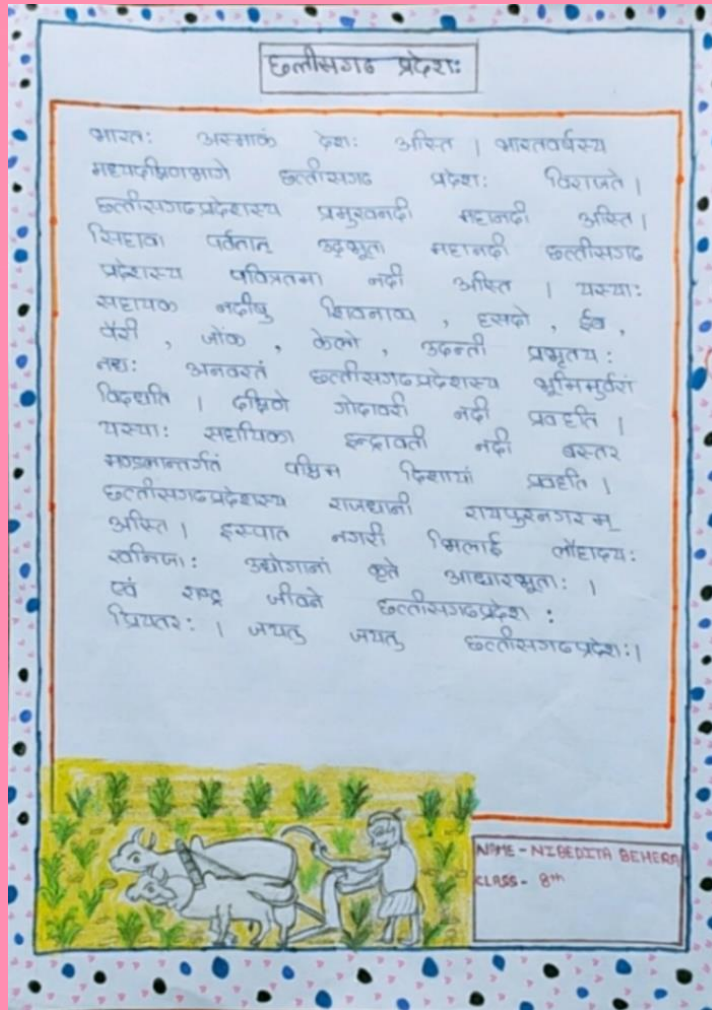 छत्तीसगढ प्रदेशः
भारतः अस्माकं देशः अस्ति । भारतवर्षस्य
मध्यदक्षिणभागे छत्तीसगढ प्रदेशः विराजते ।
छत्तीसगढप्रदेशस्य प्रमुखनदी महानदी अस्ति ।
सिहावा पर्वतात् उद्भूता महानदी छत्तीसगढ
प्रदेशस्य पवित्रतमा नदी अस्ति । यस्याः
सहायक नदीषु शिवनाथ , हसदो , ईब ,
पैरी , जोंक , केलो , उदन्ती प्रभृतयः
नद्यः अनवरतं छत्तीसगढप्रदेशस्य भूमिमुर्वरां
विदधति । दक्षिणे गोदावरी नदी प्रवहति ।
यस्याः सहायिका इन्द्रावती नदी बस्तर
मण्डलान्तर्गतं पश्चिम दिशायां प्रवहति ।
छत्तीसगढप्रदेशस्य राजधानी रायपुरनगरम्
अस्ति । इस्पात नगरी भिलाई लौहादयः
खनिजाः उद्योगानां कृते आधारभूताः ।
एवं राष्ट्र जीवने छत्तीसगढप्रदेशः
प्रियतरः । जयतु जयतु छत्तीसगढप्रदेशः।
NAME - NIBEDITA BEHERA
CLASS - 8th